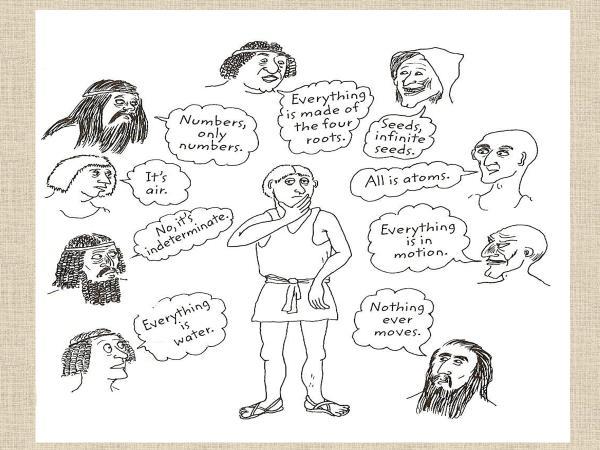 Everything
is made of
the four
roots.
Numbers,
only
numbers.
Seeds,
infinite
seeds.
It's
air.
All is atoms.
No, it's
indeterminate.
Everything
is in
motion.
Everything
is
water.
Nothing
ever
moves.